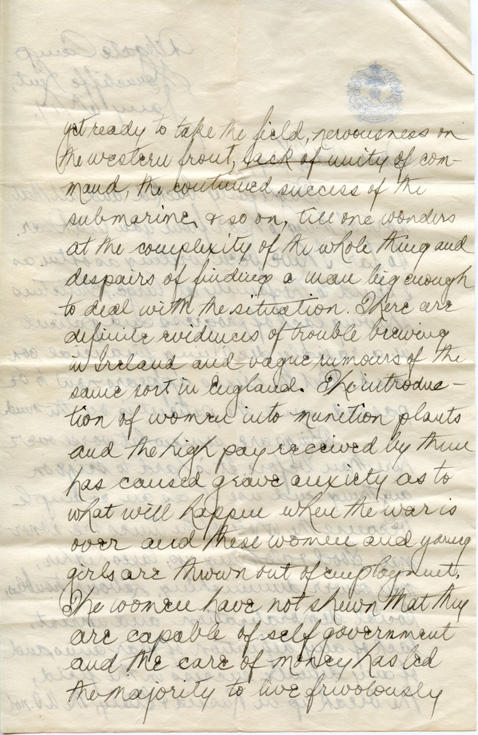 get ready to take the field, nervousness on
the western front, lack of unity of com-
mand, the continued success of the
submarine, & so on, till one wonders
at the complexity of the whole thing and
despairs of finding a man big enough
to deal with the situation. There are
definite evidences of trouble brewing
in Ireland and vague rumours of the
same sort in England. The introduc-
tion of women into munition plants
and the high pay received by them
has caused grave anxiety as to
what will happen when the war is
over and these women and young
girls are thrown out of employment.
The women have not shewn that they
are capable of self government
and the care of money has led
the majority to live frivolously